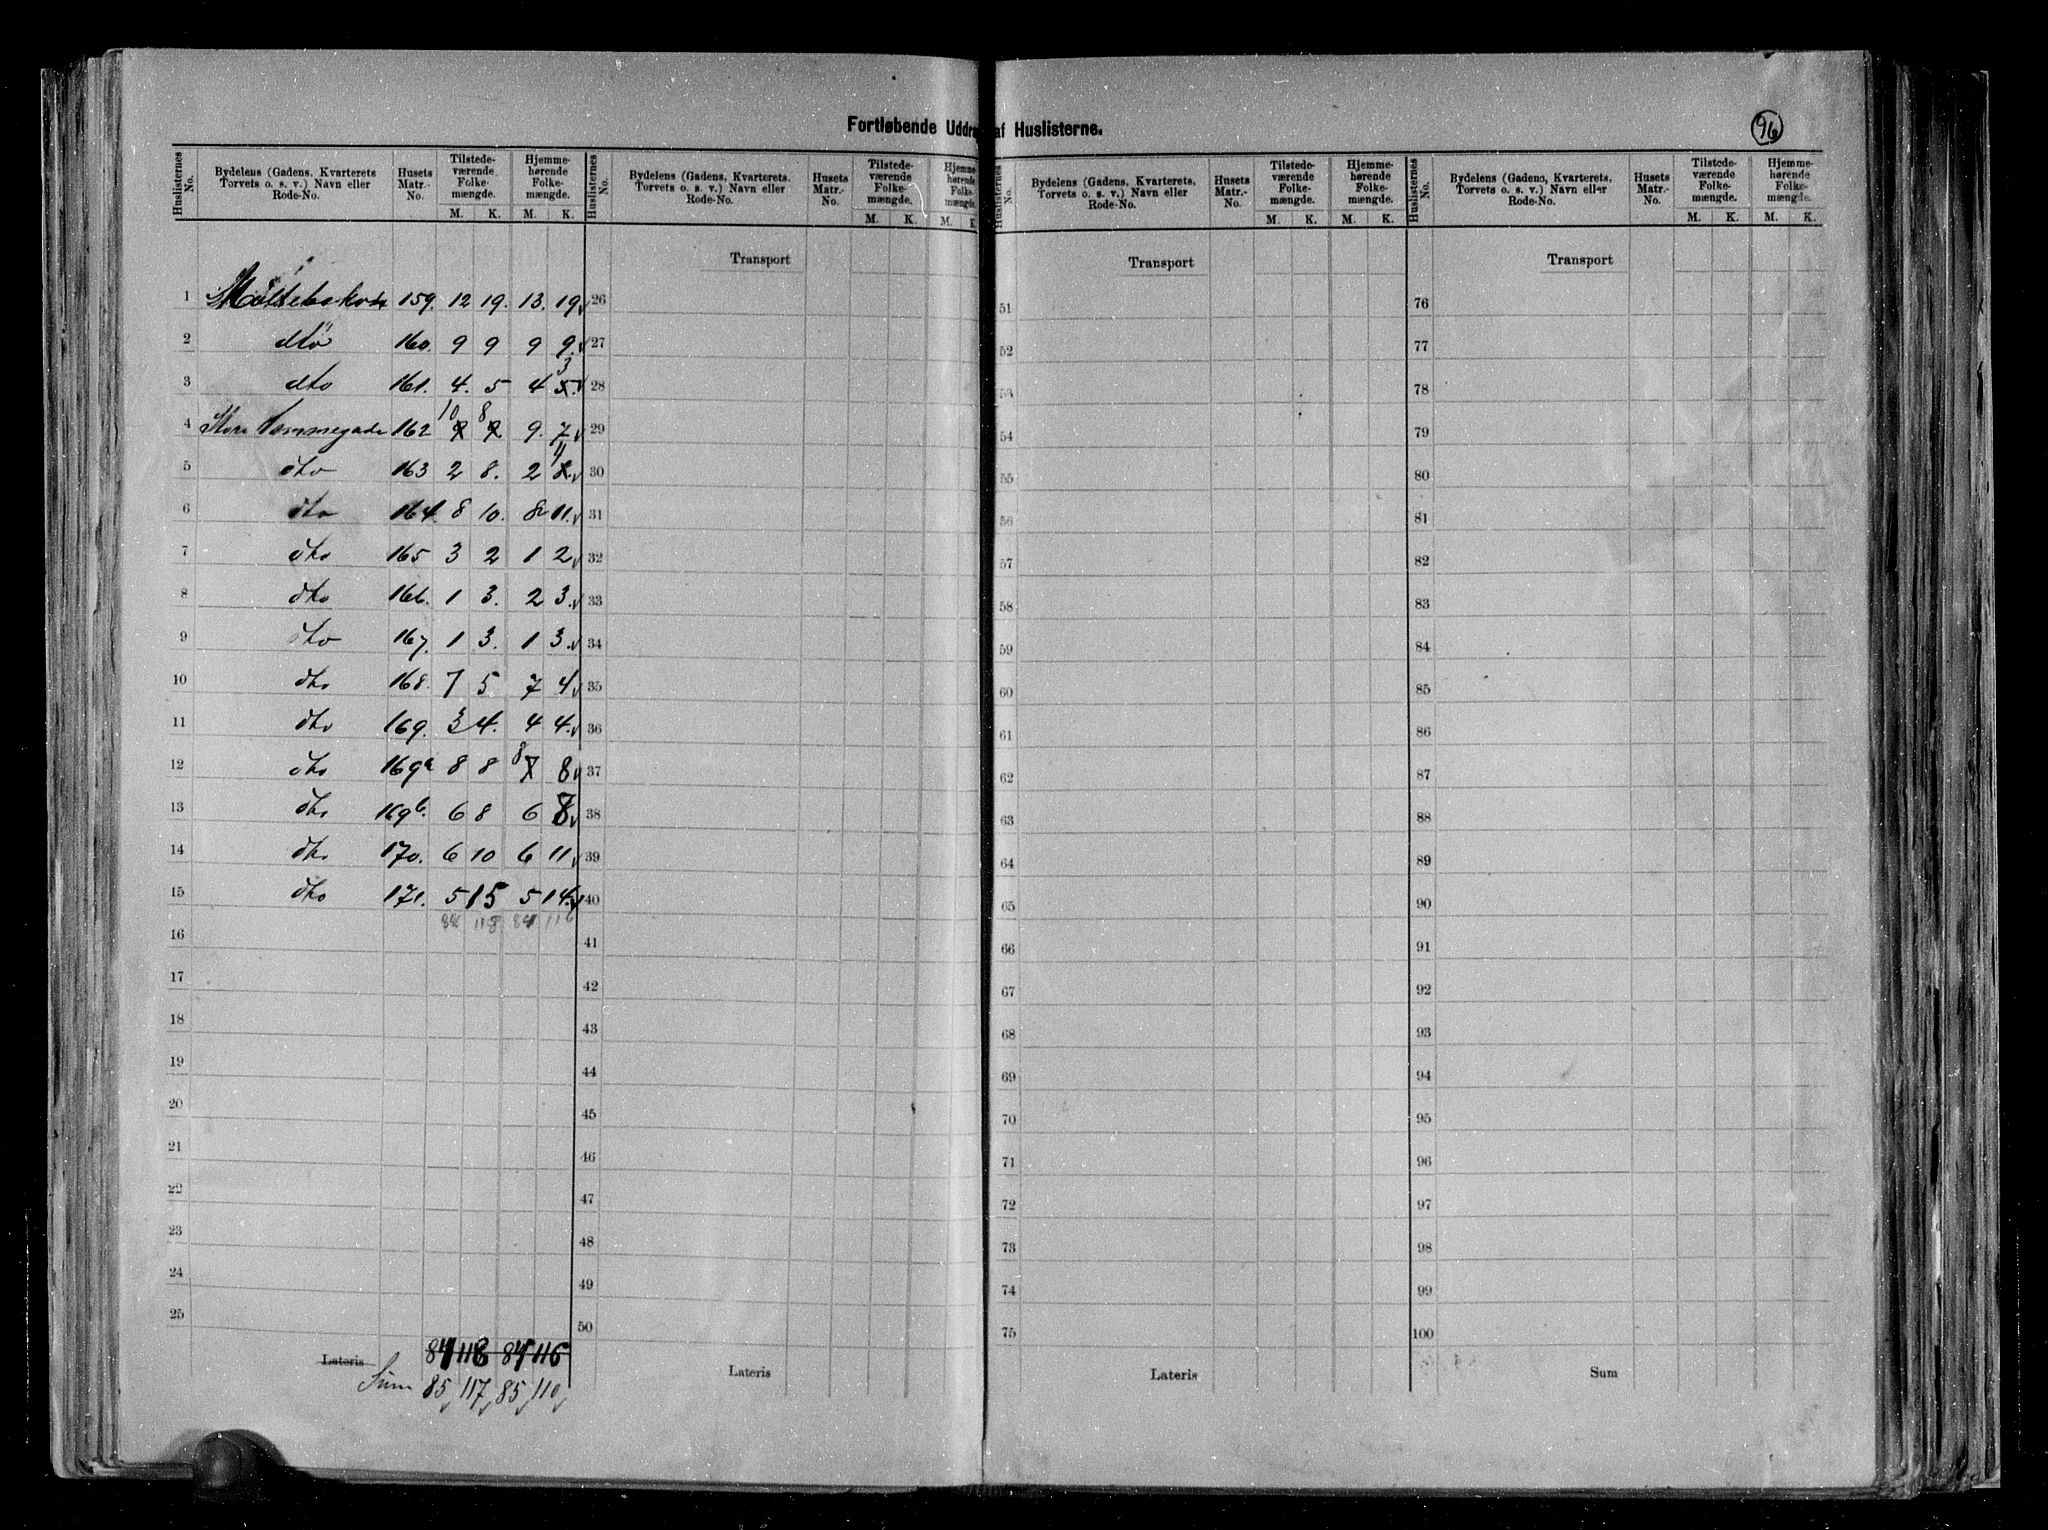 Fortløbende Uddra af Huslisterne.
96
Huslisternes No. Bydelens (Gadens, Kvarterets Torvets o. s. v.) Navn eller Rode-No. Husets Matr.-No. Tilstedeværende Folkemængde. M. K. Hjemmehørende Folkemængde. M. K.
Huslisternes No. Bydelens (Gadens, Kvarterets, Torvets o. s. v.) Navn eller Rode-No. Husets Matr.-No. Tilstedeværende Folkemængde. M. K. Hjemmehørende Folkemængde. M. K
Huslisternes No. Bydelens (Gadens, Kvarterets, Torvets o. s. v.) Navn eller Rode-No. Husets Matr.-No. Tilstedeværende Folkemængde. M. K. Hjemmehørende Folkemængde. M. K.
Huslisternes No. Bydelens (Gadens, Kvarterets, Torvets o. s. v.) Navn eller Rode-No. Husets Matr.-No. Tilstedeværende Folkemængde. M. K. Hjemmehørende Folkemængde. M. K.
1 159. 12 19. 13. 19
2 dto 160. 9 9 9 9.
3 dto 161. 4. 5 4 5. 3
4 162 10 8 9. 7
5 dto 163 2 8. 2 4
6 dto 164. 8 10. 8 11.
7 dto 165 3 2 1 2
8 dto 166. 1 3. 2 3.
9 dto 167. 1 3. 1 3.
10 dto 168. 7 5 7 4
11 dto 169. 3 4. 4 4.
12 dto 169a 8 8 8 7 8
13 dto 169b. 6 8 6 8
14 dto 170. 6 10 6 11
15 dto 171. 5 15 5 14.
118 116
16
17
18
19
20
21
22
23
24
25
Lateris 118 116
Sum 85 117 85 110
Transport
26
27
28
29
30
31
32
33
34
35
36
37
38
39
40
41
42
43
44
45
46
47
48
49
50
Lateris
Transport
51
52
53
54
55
56
57
58
59
60
61
62
63
64
65
66
67
68
69
70
71
72
73
74
75
Lateris
Transport
76
77
78
79
80
81
82
83
84
85
86
87
88
89
90
91
92
93
94
95
96
97
98
99
100
Sum